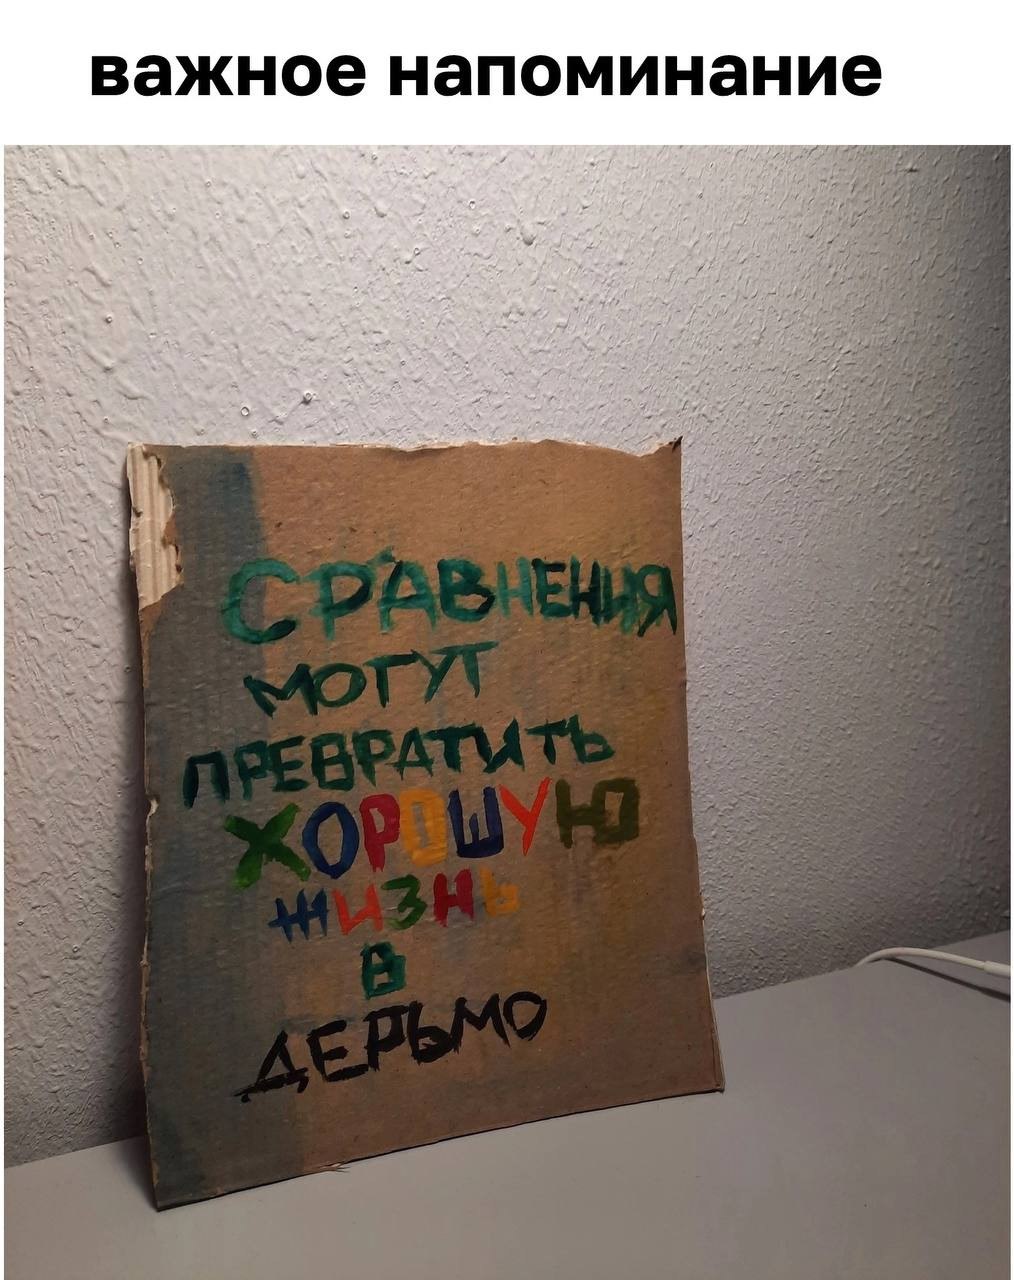 важное напоминание
СРАВНЕНИЯ
МОГУТ
ПРЕВРАТИТЬ
ХОРОШУЮ
ЖИЗНЬ
В
ДЕРЬМО